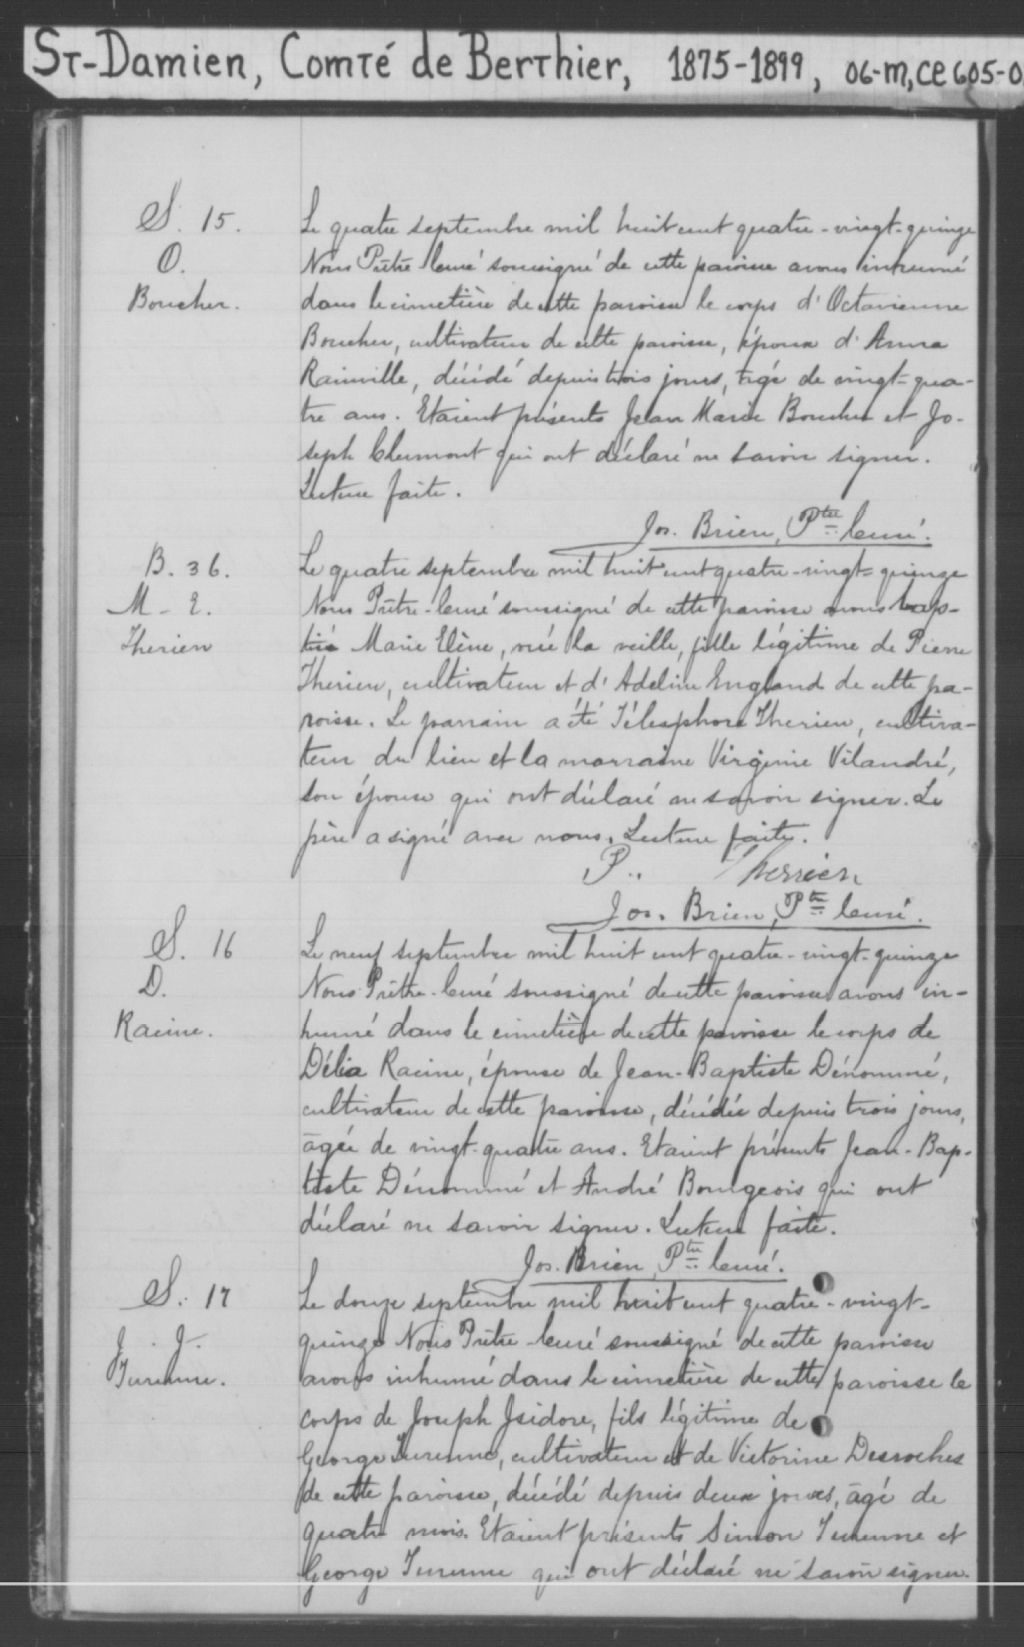 ST-Damien, Comté de Berthier, 1875-1899, 06-M, CE605-0
S. 15.
O.
Boucher.
Le quatre septembre mil huit cent quatre-vingt-quinze
Nous Prêtre Curé soussigné de cette paroisse avons inhumé
dans le cimetière de cette paroisse le corps d'Octavienne
Boucher, cultivateur de cette paroisse, époux d'Anna
Rainville, décédé depuis trois jours, âgé de vingt-qua-
tre ans. Etaient présents Jean Marie Boucher et Jo-
seph Clermont qui ont déclaré ne savoir signer.
Lecture faite.
Jos. Brien, Ptre Curé.
B. 36.
M-E.
Therien
Le quatre septembre mil huit cent quatre-vingt-quinze
Nous Prêtre-Curé soussigné de cette paroisse avons bap-
tisé Marie Elène, née la veille, fille légitime de Pierre
Therien, cultivateur et d'Adeline England de cette pa-
roisse. Le parrain a été Télesphore Therien, cultiva-
teur du lieu et la marraine Virginie Vilandré,
son épouse qui ont déclaré ne savoir signer. Le
père a signé avec nous. Lecture faite.
P.. Therrien
Jos. Brien, Ptre Curé.
S. 16
D.
Racine.
Le neuf septembre mil huit cent quatre-vingt-quinze
Nous Prêtre-Curé soussigné de cette paroisse avons in-
humé dans le cimetière de cette paroisse le corps de
Délia Racine, épouse de Jean-Baptiste Dénommé,
cultivateur de cette paroisse, décédée depuis trois jours,
âgée de vingt-quatre ans. Etaient présents Jean-Bap-
tiste Dénommé et André Bourgeois qui ont
déclaré ne savoir signer. Lecture faite.
Jos. Brien, Ptre Curé.
S. 17
J. J.
Turenne.
Le douze septembre mil huit cent quatre-vingt-
quinze Nous Prêtre-Curé soussigné de cette paroisse
avons inhumé dans le cimetière de cette paroisse le
corps de Joseph Isidore, fils légitime de
George Turenne, cultivateur et de Victorine Desroches
de cette paroisse, décédé depuis deux jours, âgé de
quatre mois. Etaient présents Simon Turenne et
George Turenne qui ont déclaré ne savoir signer.